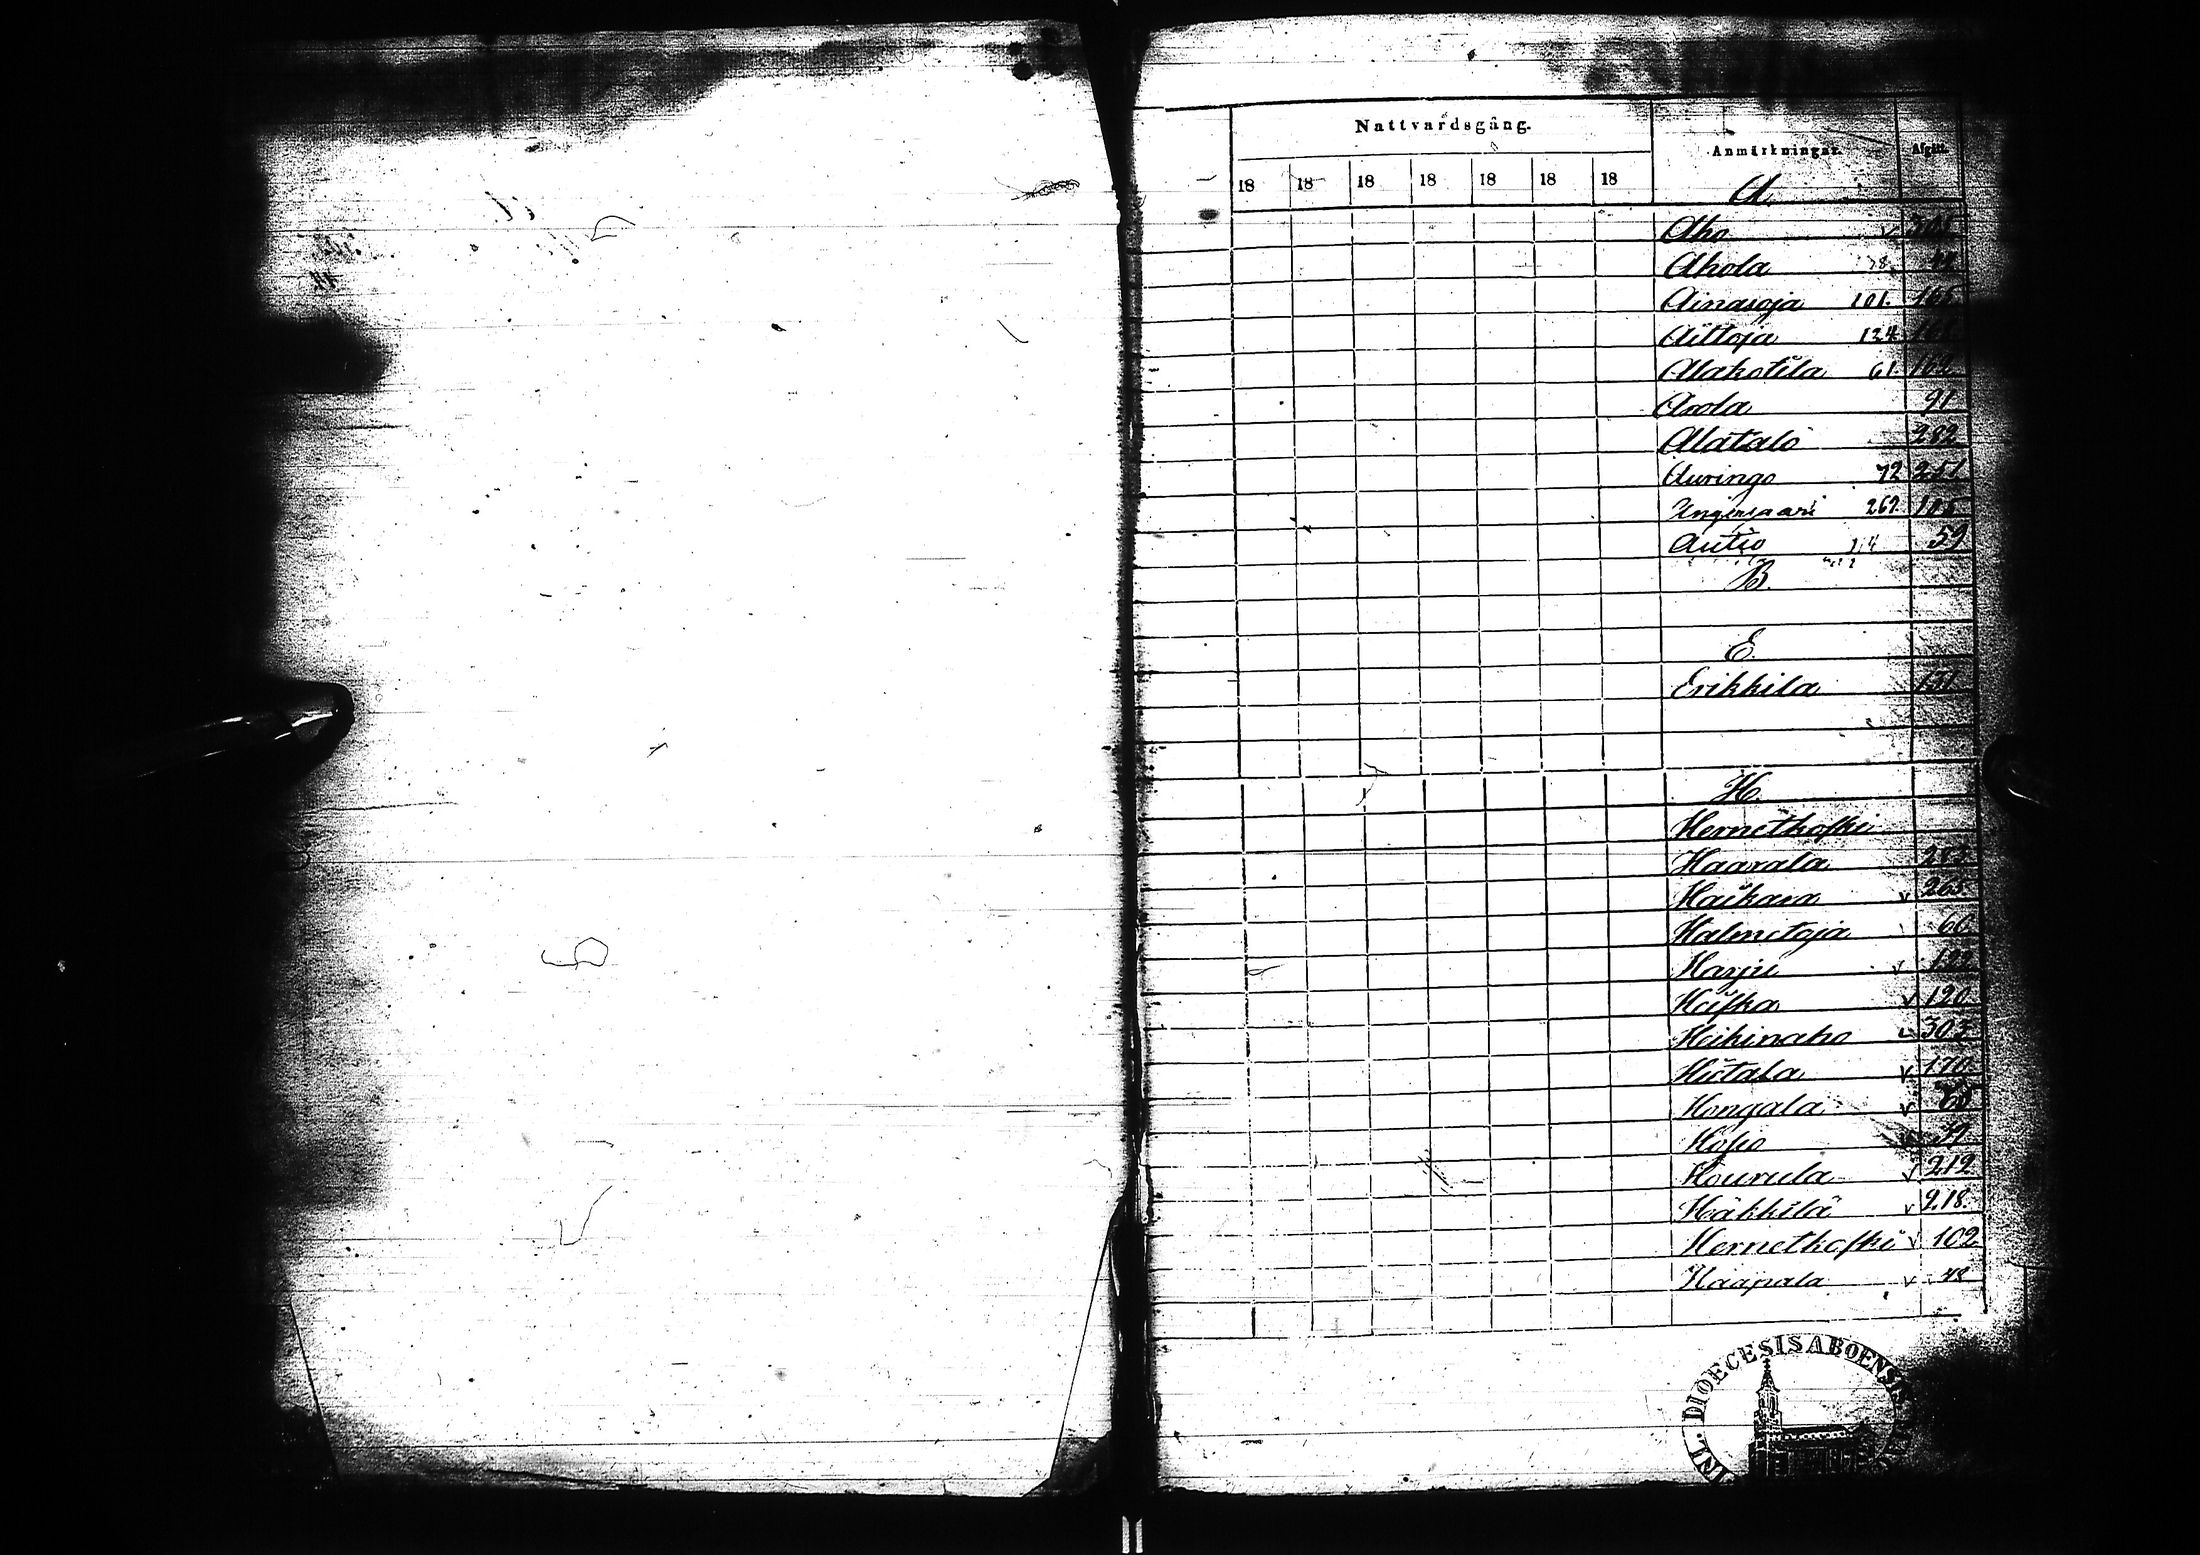 Nattvardsgång.
Anmärkningar.
Afgått.
18 18 18 18 18 18 18
A.
Aho
Ahola 78.
Ainasoja 101. 165
Aittoja 124
Alakotila 61. 162
Arola 91
Alatalo 282
Auringo 72 251
Unginsaari 267.
Autio 59
B.
E.
Erikkila 131
H.
Hernetkoski
Haarala 283
Haikara v 265.
Halmetoja 66
Harju v 122
Heiska v 120
Heikinaho v 303
Hietala v 170
Hongala v
Hopio 39
Hourula v 212
Häkkilä v 218.
Hernetkoski v 102
Haapala v 48
DIOECESIS ABOENSIS